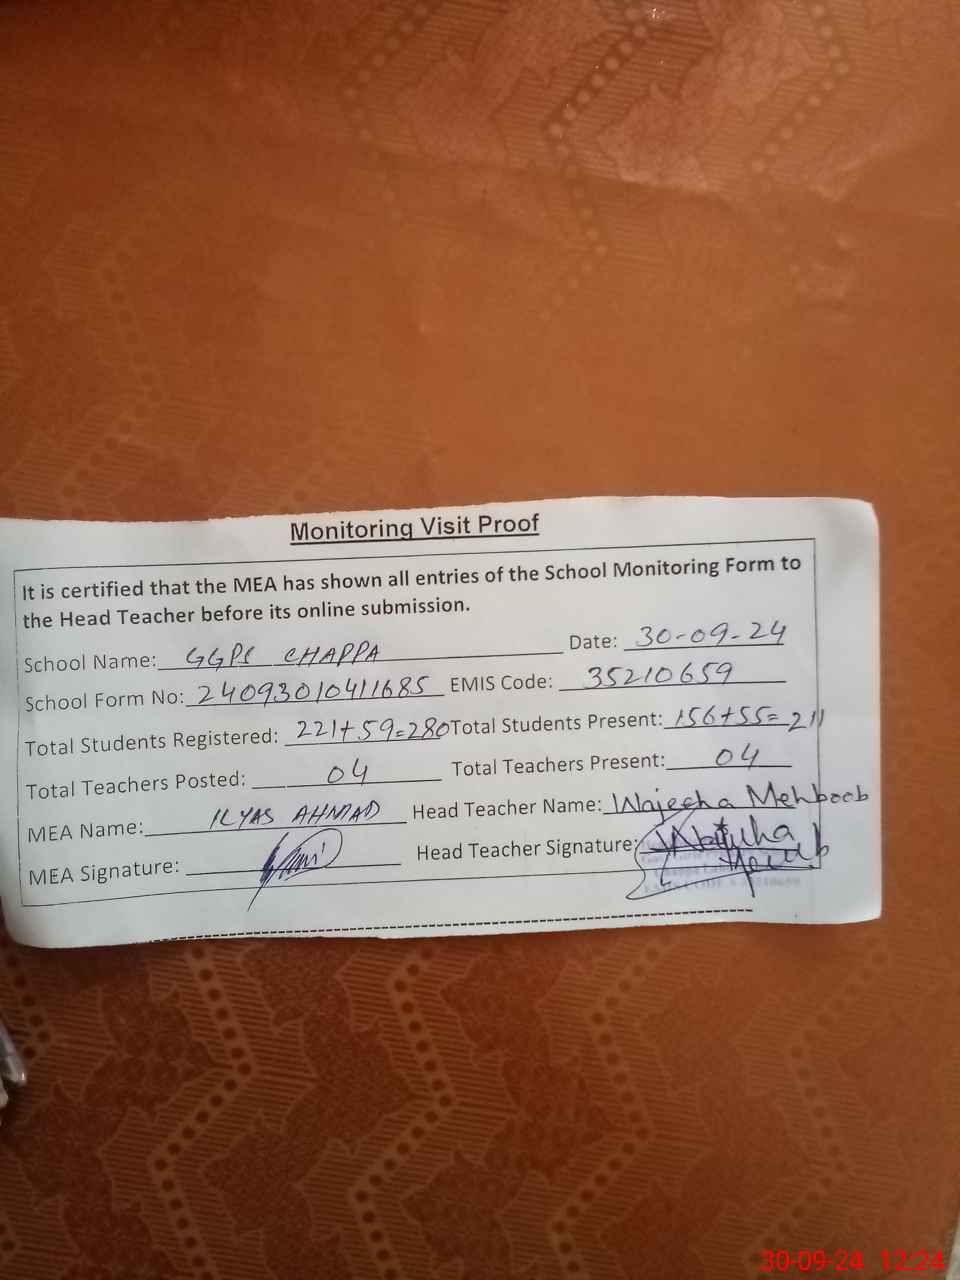 Monitoring Visit Proof
It is certified that the MEA has shown all entries of the School Monitoring Form to
the Head Teacher before its online submission.
School Name: GGPS CHAPPA Date: 30-09-24
School Form No: 24093010411685 EMIS Code: 35210659
Total Students Registered: 221+59=280 Total Students Present: 156+55=211
Total Teachers Posted: 04 Total Teachers Present: 04
MEA Name: ILYAS AHMAD Head Teacher Name: Wajeeha Mehboob
MEA Signature: Head Teacher Signature:
30-09-24 12:24